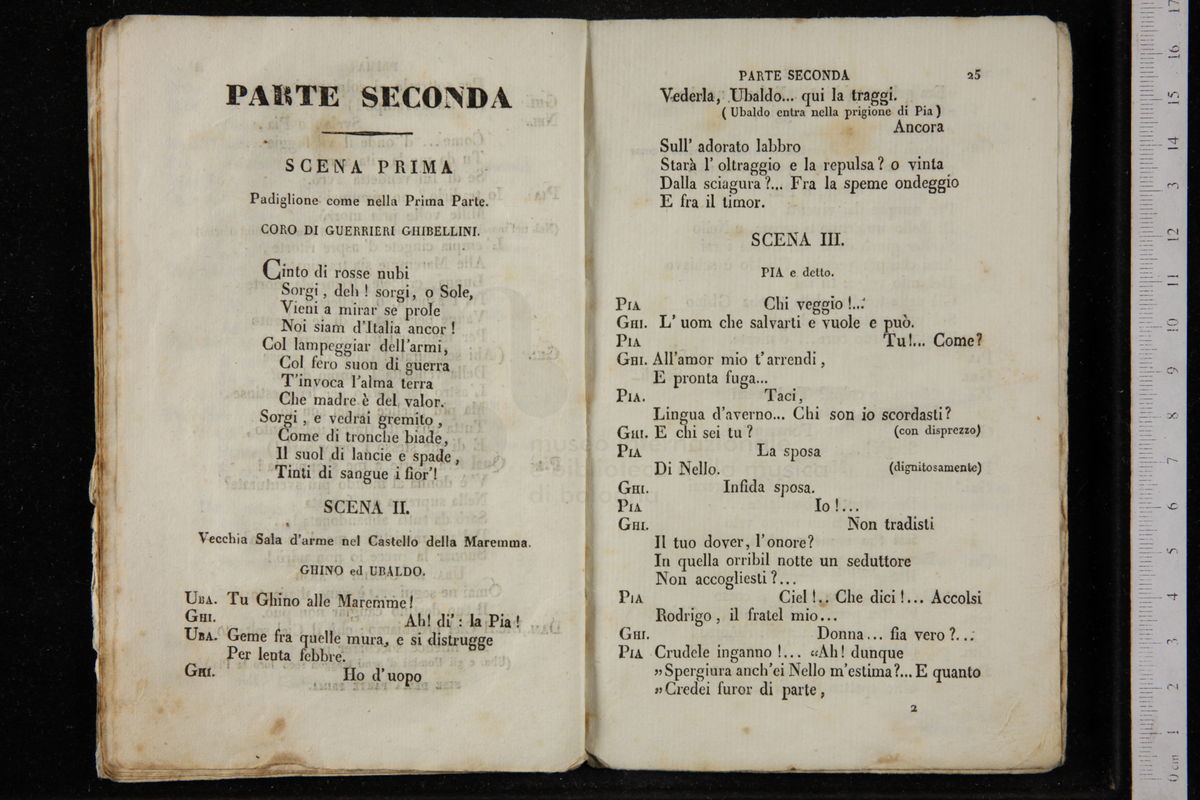 PARTE SECONDA
SCENA PRIMA
Padiglione come nella Prima Parte.
CORO DI GUERRIERI GHIBELLINI.
Cinto di rosse nubi
Sorgi, deh! sorgi, o Sole,
Vieni a mirar se prole
Noi siam d'Italia ancor!
Col lampeggiar dell'armi,
Col fero suon di guerra
T'invoca l'alma terra
Che madre è del valor.
Sorgi, e vedrai gremito,
Come di tronche biade,
Il suol di lancie e spade,
Tinti di sangue i fior'!
SCENA II.
Vecchia Sala d'arme nel Castello della Maremma.
GHINO ed UBALDO.
UBA. Tu Ghino alle Maremme!
GHI. Ah! di': la Pia!
UBA. Geme fra quelle mura, e si distrugge
Per lenta febbre.
GHI. Ho d'uopo
PARTE SECONDA 25
Vederla, Ubaldo... qui la traggi.
(Ubaldo entra nella prigione di Pia)
Ancora
Sull' adorato labbro
Starà l' oltraggio e la repulsa? o vinta
Dalla sciagura?... Fra la speme ondeggio
E fra il timor.
SCENA III.
PIA e detto.
PIA Chi veggio!...
GHI. L' uom che salvarti e vuole e può.
PIA Tu!... Come?
GHI. All'amor mio t'arrendi,
E pronta fuga...
PIA. Taci,
Lingua d'averno... Chi son io scordasti?
GHI. E chi sei tu? (con disprezzo)
PIA La sposa
Di Nello. (dignitosamente)
GHI. Infida sposa.
PIA Io!...
GHI. Non tradisti
Il tuo dover, l'onore?
In quella orribil notte un seduttore
Non accogliesti?...
PIA Ciel!.. Che dici!... Accolsi
Rodrigo, il fratel mio...
GHI. Donna... fia vero?...
PIA Crudele inganno!... «Ah! dunque
»Spergiura anch'ei Nello m'estima?... E quanto
»Credei furor di parte,
2
museo
biblioteca musica
di bologna
0 cm 1 2 3 4 5 6 7 8 9 10 11 12 13 14 15 16 17